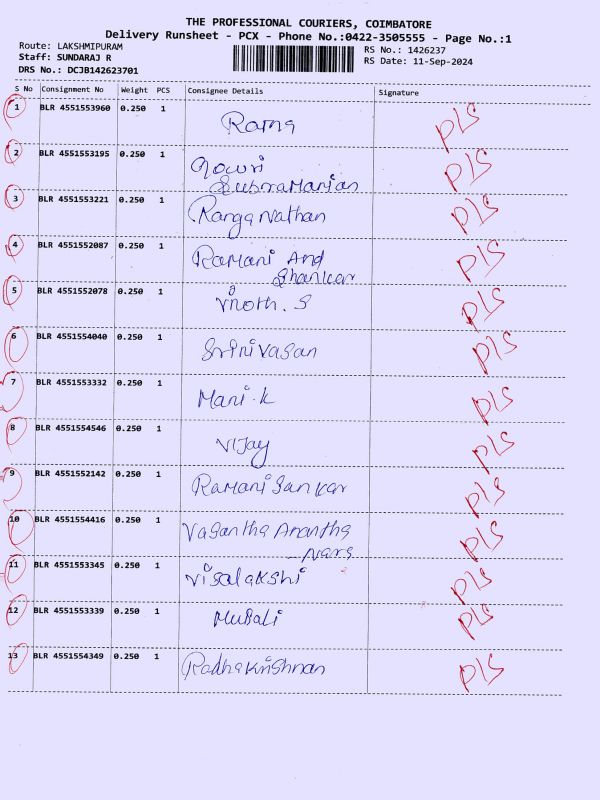 THE PROFESSIONAL COURIERS, COIMBATORE
Delivery Runsheet - PCX - Phone No.:0422-3505555 - Page No.:1
Route: LAKSHMIPURAM RS No.: 1426237
Staff: SUNDARAJ R RS Date: 11-Sep-2024
DRS No.: DCJB142623701
S No Consignment No Weight PCS Consignee Details Signature
1 BLR 4551553960 0.250 1 Rama PLS
2 BLR 4551553195 0.250 1 Gowri PLS
Subramanian
3 BLR 4551553221 0.250 1 Ranganathan PLS
4 BLR 4551552087 0.250 1 Ramani And PLS
Shankar
5 BLR 4551552078 0.250 1 Vinoth. S PLS
6 BLR 4551554040 0.250 1 Srinivasan PLS
7 BLR 4551553332 0.250 1 Mani.K PLS
8 BLR 4551554546 0.250 1 Vijay PLS
9 BLR 4551552142 0.250 1 Ramani Sankar PLS
10 BLR 4551554416 0.250 1 Vasantha Anantha PLS
-Nara
11 BLR 4551553345 0.250 1 Visalakshi PLS
12 BLR 4551553339 0.250 1 Murali PLS
13 BLR 4551554349 0.250 1 Radhakrishnan PLS